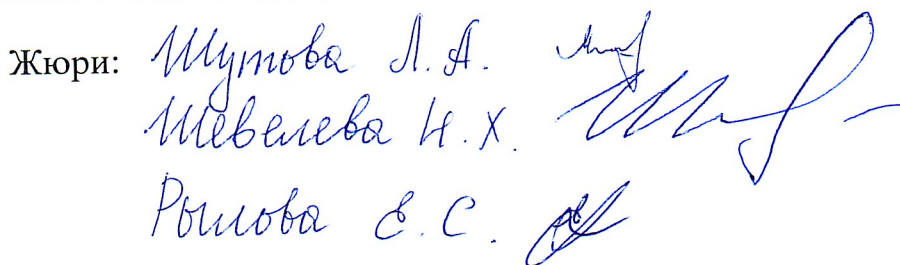 Жюри: Шутова Л. А.
Шевелева Н. Х.
Рылова Е. С.